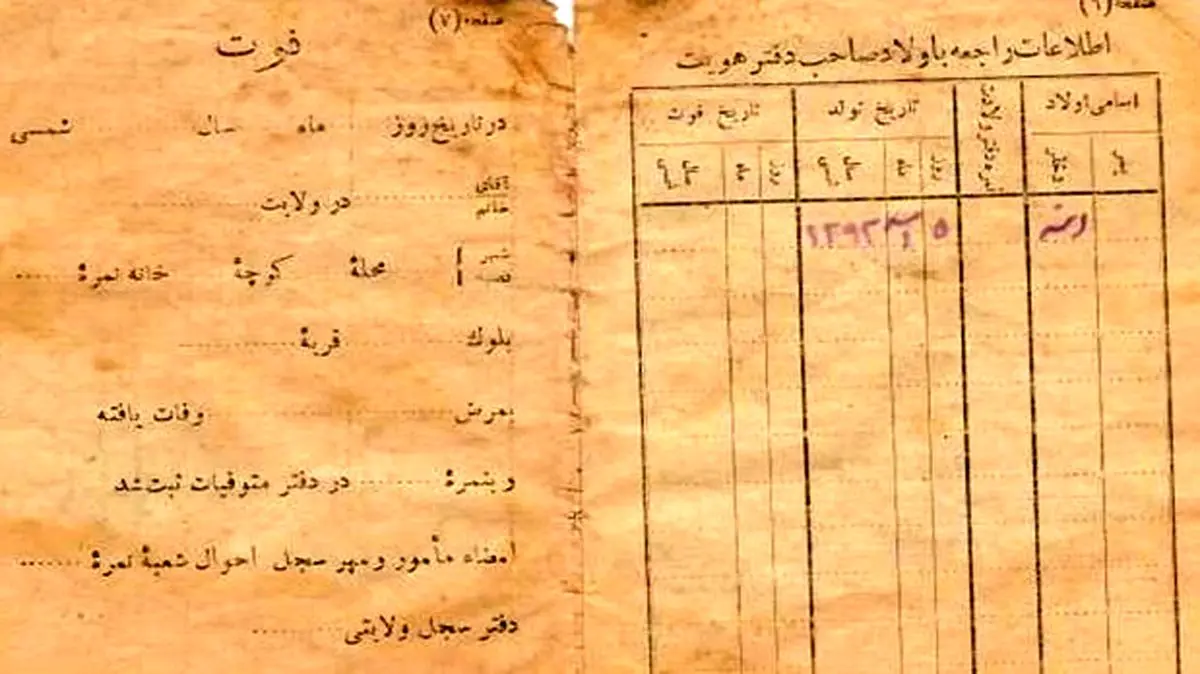 صفحه (٦)
اطلاعات راجعه باولاد صاحب دفتر هویت
اسامی اولاد
نمره دفتر ولادت
تاریخ تولد
تاریخ فوت
پسر
دختر
روز
ماه
سال شمسی
روز
ماه
سال شمسی
۵
۱۲۹۲
صفحه (٧)
فوت
در تاریخ روز ماه سال شمسی
آقای
خانم
در ولایت
شهر
قصبه
محلهٔ کوچهٔ خانه نمرهٔ
بلوك قریهٔ
بمرض وفات یافته
و بنمرهٔ در دفتر متوفیات ثبت شد
امضاء مأمور و مهر سجل احوال شعبهٔ نمرهٔ
دفتر سجل ولایتی